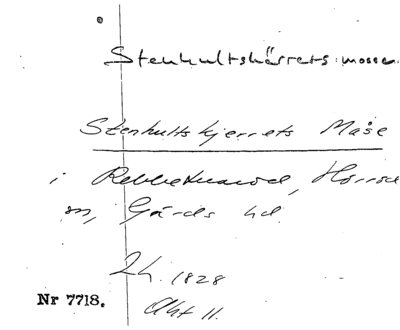 Stenhultskärrets mosse.
Stenhultskjerrets Måse
i Rebbetuaröd, Hörröd
sn, Gärds hd.
Lh. 1828
Nr 7718.
Akt 11.